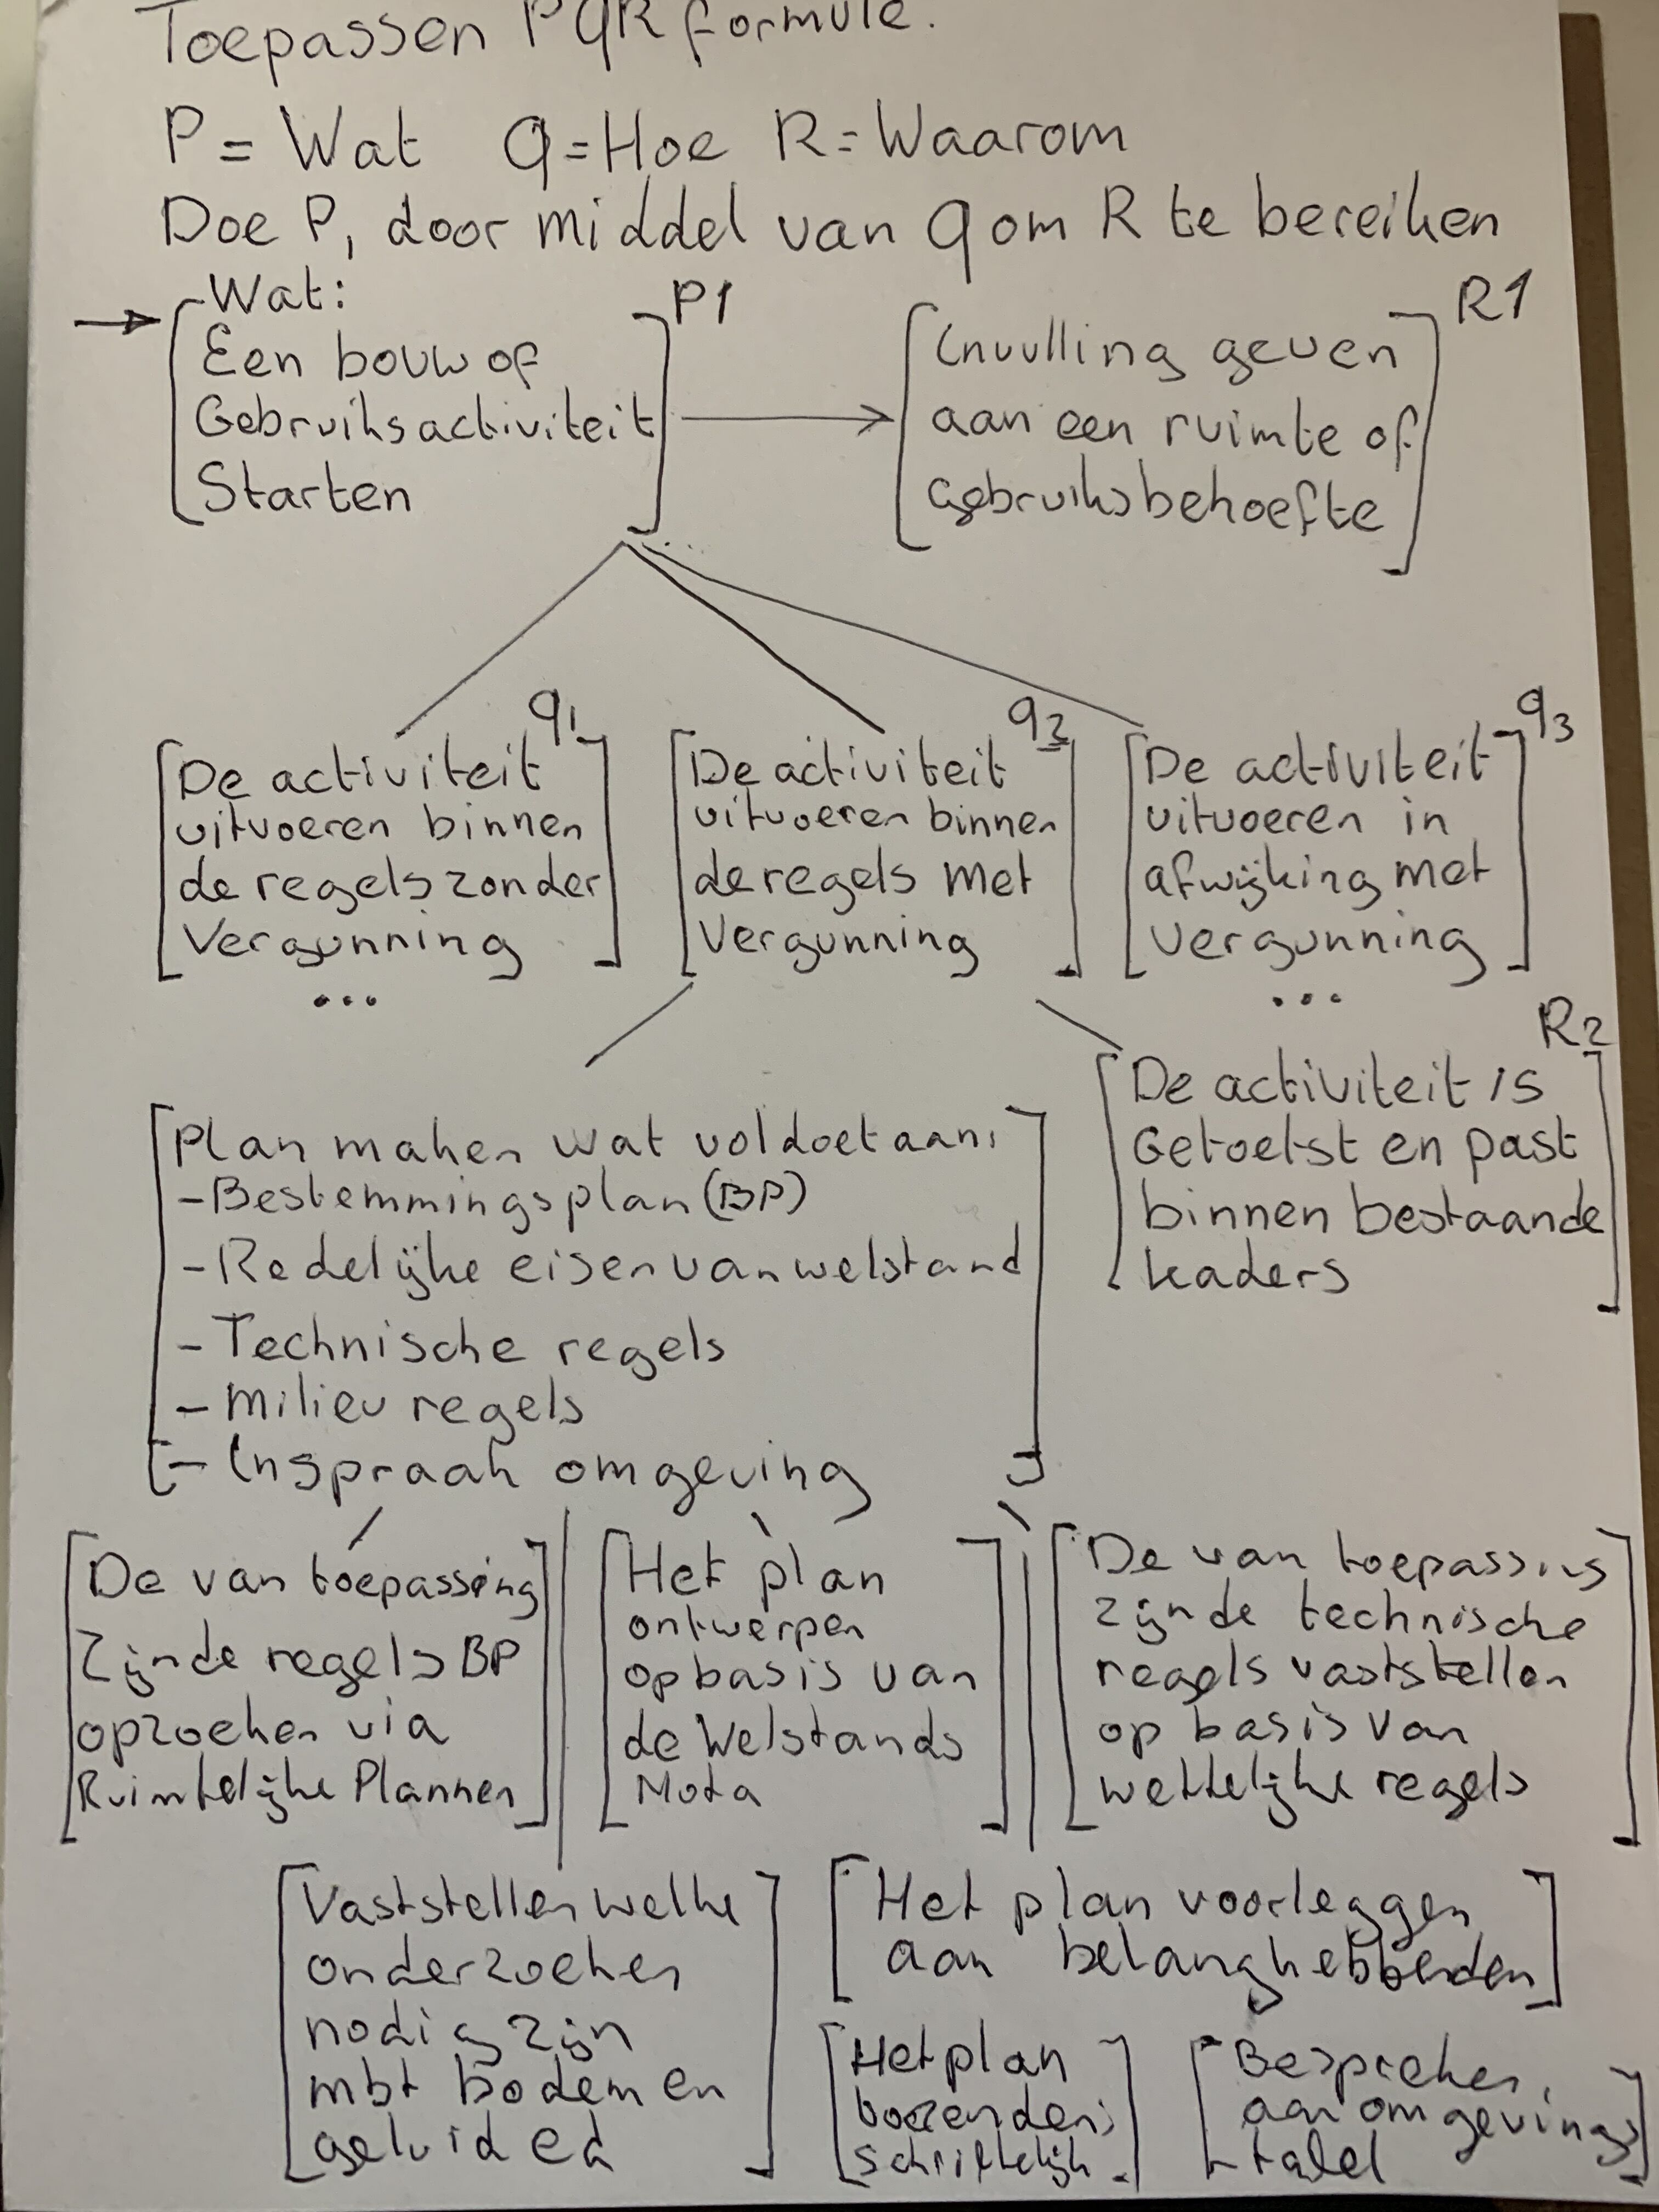 Toepassen PQR formule.
P = Wat q = Hoe R = Waarom
Doe P, door middel van q om R te bereiken
Wat:
Een bouw of
Gebruiksactiviteit
Starten
P1
Invulling geven
aan een ruimte of
gebruiksbehoefte
R1
q1
De activiteit
uitvoeren binnen
de regels zonder
Vergunning
...
q2
De activiteit
uitvoeren binnen
de regels met
Vergunning
q3
De activiteit
uitvoeren in
afwijking met
vergunning
...
Plan maken wat voldoet aan:
- Bestemmingsplan (BP)
- Redelijke eisen van welstand
- Technische regels
- milieu regels
- Inspraak omgeving
R2
De activiteit is
Getoetst en past
binnen bestaande
kaders
De van toepassing
Zijnde regels BP
opzoeken via
Ruimtelijke Plannen
Het plan
ontwerpen
op basis van
de Welstands
Nota
De van toepassing
zijnde technische
regels vaststellen
op basis van
wettelijke regels
Vaststellen welke
onderzoeken
nodig zijn
mbt bodem en
geluid ed
Het plan voorleggen
aan belanghebbenden
Het plan
schriftelijk
Bespreken
aan omgevings
tafel